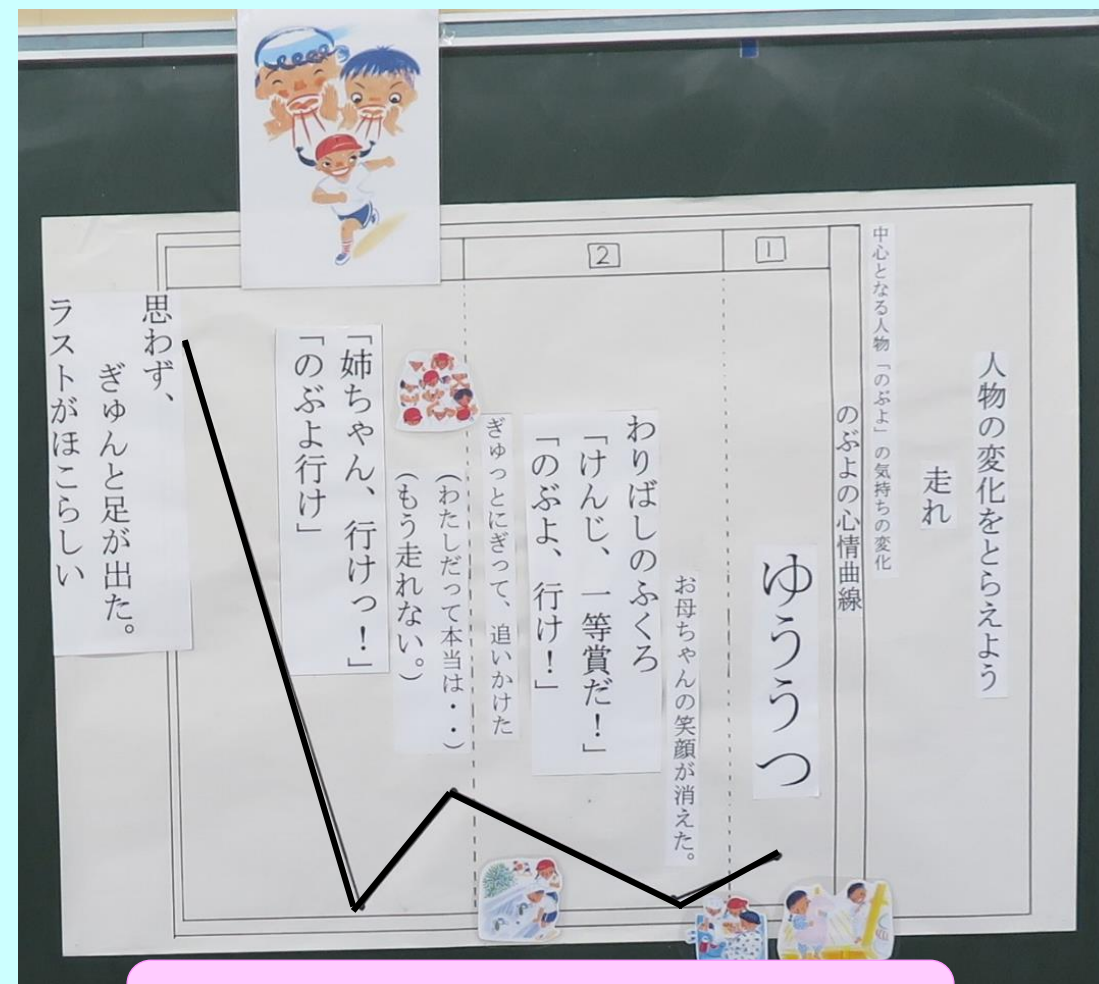 人物の変化をとらえよう
走れ
中心となる人物「のぶよ」の気持ちの変化
のぶよの心情曲線
1
ゆううつ
2
お母ちゃんの笑顔が消えた。
わりばしのふくろ
「けんじ、一等賞だ!」
「のぶよ、行け!」
ぎゅっとにぎって、追いかけた
(わたしだって本当は・・)
(もう走れない。)
「姉ちゃん、行けっ!」
「のぶよ行け」
思わず、
ぎゅんと足が出た。
ラストがほこらしい